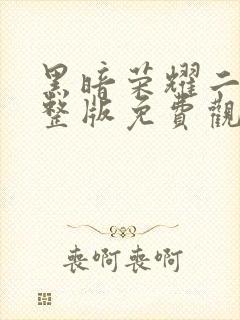 黑暗荣耀二
整版免費觀
喪啊喪啊